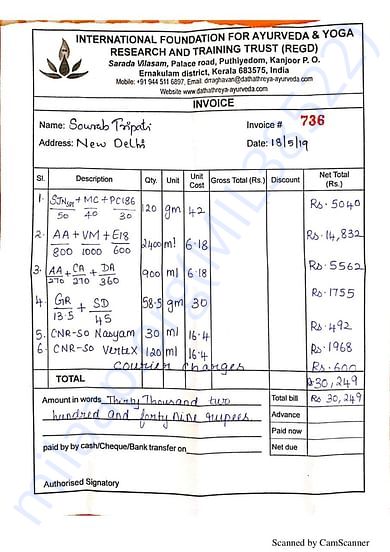 INTERNATIONAL FOUNDATION FOR AYURVEDA & YOGA
RESEARCH AND TRAINING TRUST (REGD)
Sarada Vilasam, Palace road, Puthiyedom, Kanjoor P. O.
Ernakulam district, Kerala 683575, India
Mobile: +91 944 511 6897. Email: drraghavan@dathathreya-ayurveda.com
Website www.dathathreya-ayurveda.com
INVOICE
Name: Sourab Tripati Invoice # 736
Address: New Delhi Date: 18/5/19
Sl. Description Qty. Unit Unit Cost Gross Total (Rs.) Discount Net Total (Rs.)
1. + MC + PC186 120 gm 42 Rs. 5040
50 40 30
2. AA + VM + E18 2400 ml 6.18 Rs. 14,832
800 1000 600
3. AA + CA + DA 900 ml 6.18 Rs. 5562
270 270 360
4. GR + SD 58.5 gm 30 Rs. 1755
13.5 45
5. CNR-SO Nasyam 30 ml 16.4 Rs. 492
6. CNR-SO Vertex 120 ml 16.4 Rs. 1968
Courier Charges Rs. 600
TOTAL Rs 30,249
Amount in words Thirty Thousand two Total bill Rs 30,249
hundred and forty nine rupees Advance
Paid now
paid by by cash/Cheque/Bank transfer on Net due
Authorised Signatory
Scanned by CamScanner